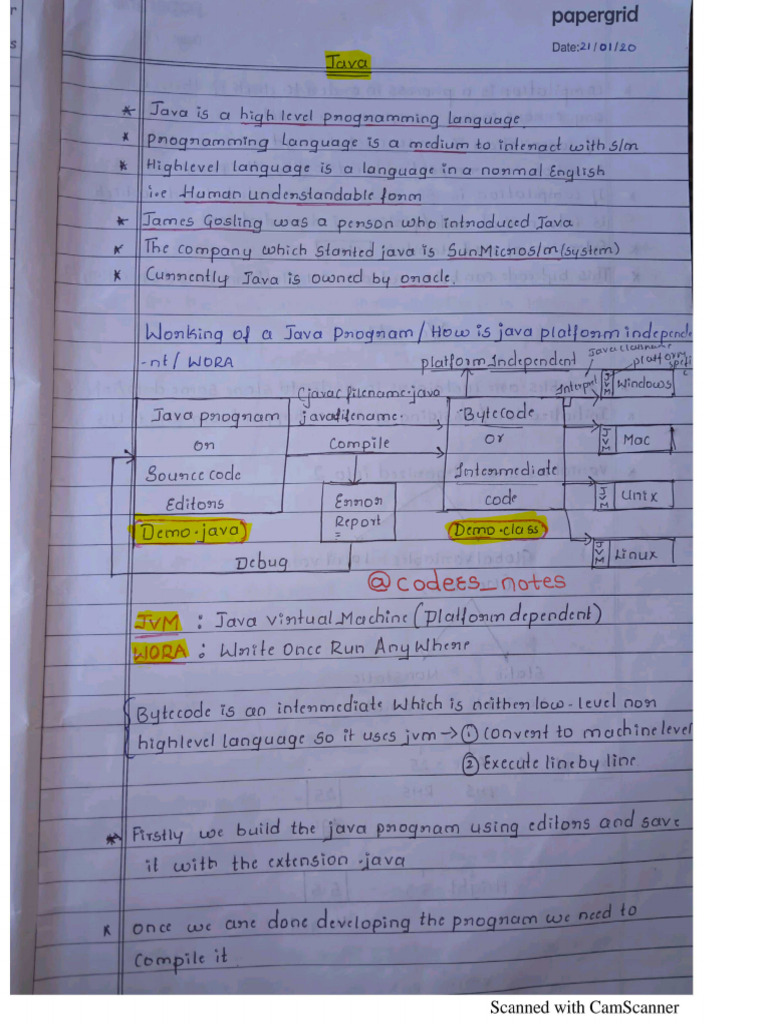 papergrid
Date: 21/01/20
Java
* Java is a high level programming language.
* Programming Language is a medium to interact with s/m
* Highlevel language is a language in a normal English
i.e Human understandable form
* James Gosling was a person who introduced Java
* The company which started java is SunMicros/m(system)
* Currently Java is owned by oracle.
Working of a Java Program/How is java platform independe
-nt/WORA
Platform Independent
Java class name
platform
Interpret
(javac filename.java
javafilename.
Compile
Java program
or
Source code
Editors
Demo.java
Error
Report
Debug
Bytecode
or
Intermediate
code
Demo.class
JVM Windows
JVM Mac
JVM Unix
JVM Linux
@codees_notes
JVM : Java Virtual Machine (Platform dependent)
WORA : Write Once Run AnyWhere
Bytecode is an intermediate which is neither low-level nor
highlevel language so it uses jvm → ① convert to machine level
② Execute line by line
* Firstly we build the java program using editors and save
it with the extension .java
* Once we are done developing the program we need to
compile it.
Scanned with CamScanner